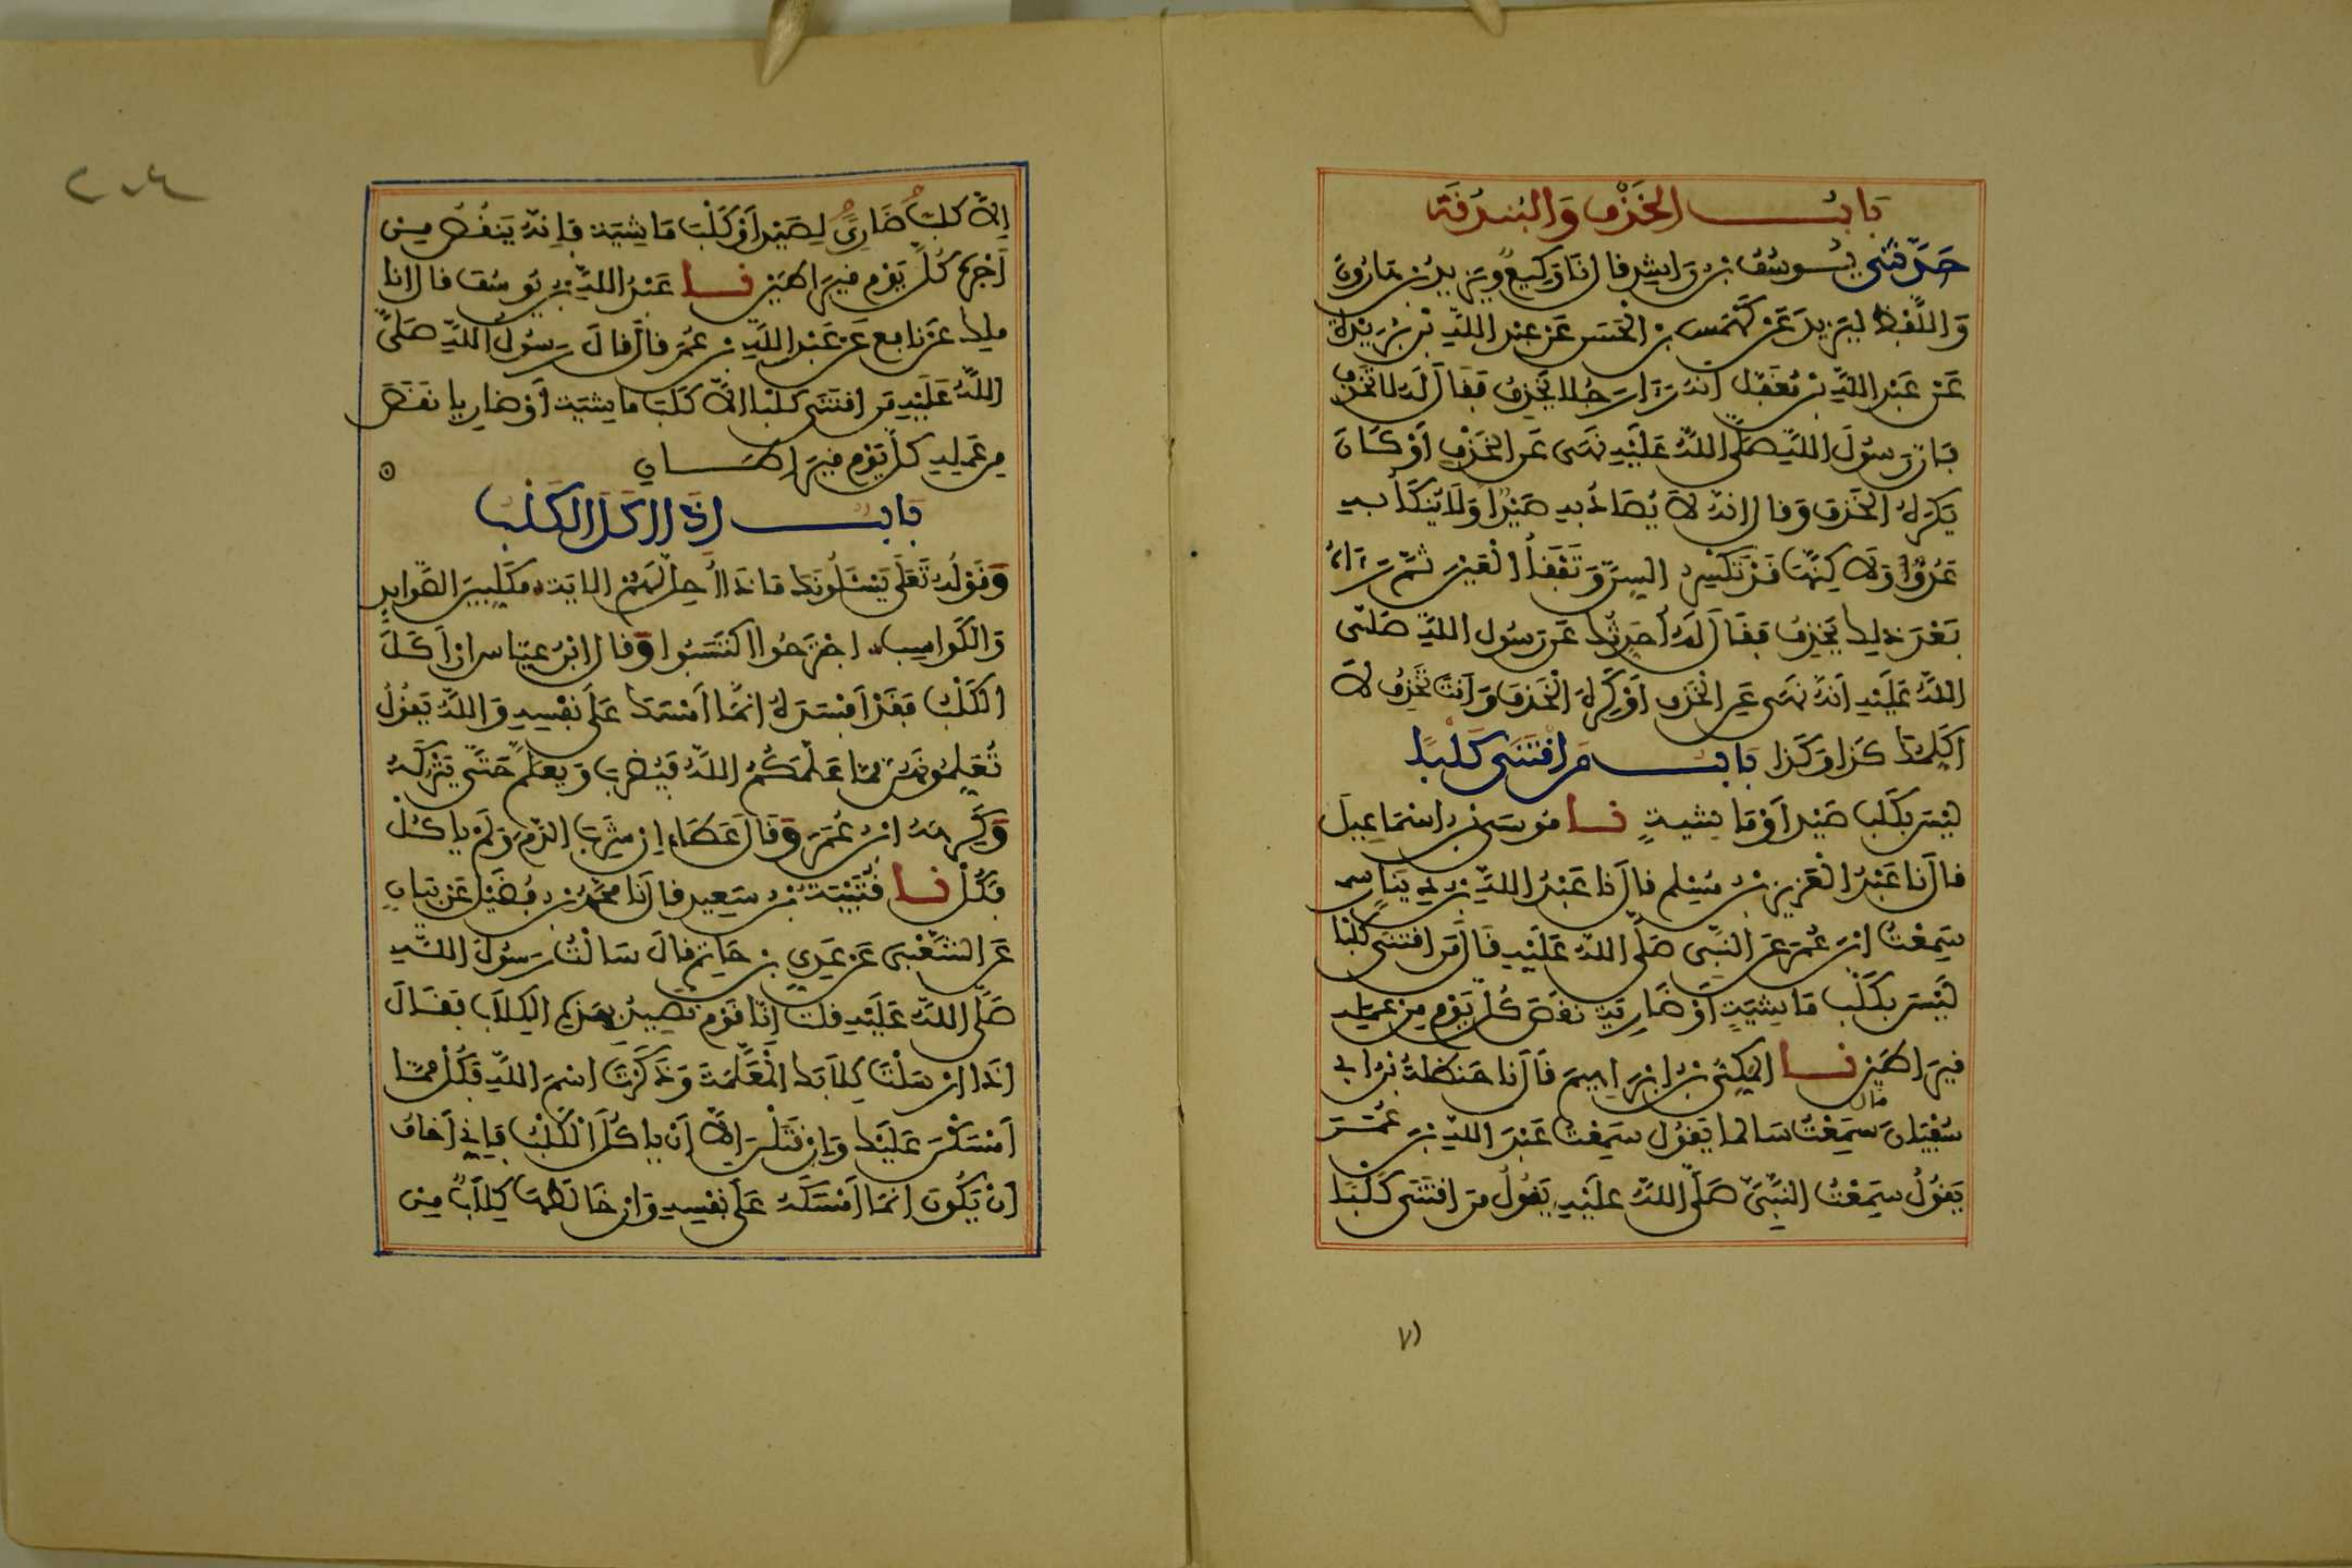 بَابُ الخَذْفِ وَالبُنْدُقَة
حَدَّثَنِي يُوسُفُ بن رَاشِدٍ قال نَا وَكِيعٌ ويَزِيدُ بن هَارُونَ
وَاللَّفْظُ لِيَزِيدَ عَن كَهْمَسِ بن الْحَسَنِ عَن عبد اللَّهِ بْنِ بُرَيْدَةَ
عَن عَبْدِ اللَّهِ بن مُغَفَّل أنه رَأى رَجُلا يَخْذِفُ فَقَالَ لَه لا تَخْذِف
فَإن رَسُولَ اللَّهِ صَلَّى اللَّهُ عَلَيْهِ نَهَى عَن الخَذْفِ أوْ كَانَ
يَكْرَهُ الخَذْفَ وَقال انه لاَ يُصَادُ به صَيْدٌ وَلاَ يُنكَأُ به
عَدُوٌّ وَلاَ كِنَّها قَدْ تَكْسِرُ السِّنَّ وَتَفْقَأُ الْعَيْنَ ثُمَّ رَءَاهُ
بَعْدَ ذلِكَ يَخْذِفُ فقَالَ لَهُ أُحَدِّثُكَ عَن رَسُول اللَّهِ صَلَّى
اللَّهُ عَلَيْهِ أنَهُ نَهَى عَنِ الْخَذْفِ أوْ كَرِهَ الْخَذْفَ وَأنتَ تَخْذِفُ لاَ
أكَلِّمُكَ كَذَا وَكَذَا بَابُ مَنِ اقْتَنَى كَلْبًا
لَيْسَ بكَلْبِ صَيْدٍ أوْ مَاشِيَةٍ نا مُوسَى بن إسْمَاعِيلَ
قال نَا عَبْدُ الْعَزِيزِ بن مُسْلِم قال نا عَبْدُ اللَّهِ بن دِينَارٍ
سَمِعْتُ ابْنَ عُمَرَ عَنِ النَّبِي صَلَّى اللَّهُ عَلَيْهِ قَالَ مَن اقْتَنَى كَلْبًا
لَيْسَ بكَلْبِ مَاشِيَةٍ أوْ ضَارِيَةٍ نَقَصَ كُلَّ يَوْمٍ مِنْ عَمَلِهِ
قِيرَاطَيْنِ نا المَكِّيُّ بن إبْرَاهِيمَ قَالَ نا حَنظَلَةُ بن أبي
سُفْيَانَ قال سَمِعْتُ سَالما يَقُولُ سَمِعْتُ عَبْدَ اللَّهِ بْنَ عُمَرَ
يَقُولُ سَمِعْتُ النَّبِيَّ صَلَّى اللَّهُ عَلَيْهِ يَقُولُ مَنِ اقْتَنَى كَلْبًا
٢٠٤
إلاَّ كلبٌ ضَارِيٌ لِصَيْدٍ أوْ كَلْبَ مَاشِيَةٍ فَإنَّهُ يَنْقُصُ مِنْ
أجْرِهِ كُلَّ يَوْمٍ قِيرَاطَيْنِ نا عَبْدُ اللَّهِ بن يُوسُفَ قال انا
ملِك عَن نافِع عَن عَبْدِ اللَّهِ بن عُمَر قالَ قالَ رَسُولُ اللَّهِ صَلَّى
اللَّهُ عَلَيْهِ مَن اقْتَنَى كَلْبًا الاَّ كَلْبَ مَاشِيَةٍ أوْ ضَارِيا نَقَصَ
مِن عَمَلِهِ كُلَّ يَوْمٍ قِيرَاطَانِ
بَابُ إذَا أكَلَ الكَلْبُ
وَقَوْلُهُ تَعَلى يَسْئَلُونَكَ مَاذَا أُحِلَّ لَهُمْ الايَة مُكَلِّبِينَ الصَّوَايِدِ
وَالكَوَاسِبِ اجْتَرَحُوا اكْتَسَبُوا وَقال ابْنُ عبّاس إن أكَلَ
الكَلْبُ فَقَدْ أفْسَدَهُ إنَّمَا أمْسَكَ عَلَى نَفْسِهِ وَاللَّهُ يَقُولُ
تُعَلِّمُونَهُنَّ مِمَّا عَلَّمَكُمُ اللَّهُ فَيُضْرَبُ وَيُعَلَّمُ حَتَّى يَتْرُكَهُ
وَكَرِهَهُ ابْنُ عُمَرَ وَقَالَ عَطَاء إن شَرِبَ الدَّمَ وَلَمْ يَاكُلْ
فَكُلْ نا قُتَيْبَةُ بْنُ سَعِيدٍ قال نَا مُحَمَّدُ بن فُضَيْلٍ عَن بَيَانٍ
عَنِ الشَّعْبِي عَن عَدِيِّ بن حَاتِمٍ قال سَالْتُ رَسُولَ اللَّهِ
صَلَّى اللَّهُ عَلَيْهِ قلت إنَّا قَوْمٌ نَصِيدُ بِهَذِهِ الْكِلاَبِ فَقَالَ
إذَا أرْسَلْتَ كِلاَبَكَ الْمُعَلَّمَةَ وَذَكَرْتَ اسْمَ اللَّهِ فَكُلْ مِمَّا
أمْسَكْنَ عَلَيْكَ وَإن قَتَلْنَ إلاَّ أنْ يَاكُلَ الْكَلْبُ فَإني أخَافُ
أنْ يَكُونَ إنَّمَا أمْسَكَهُ عَلَى نَفْسِهِ وَإن خَالَطَهَا كِلاَبٌ مِنْ